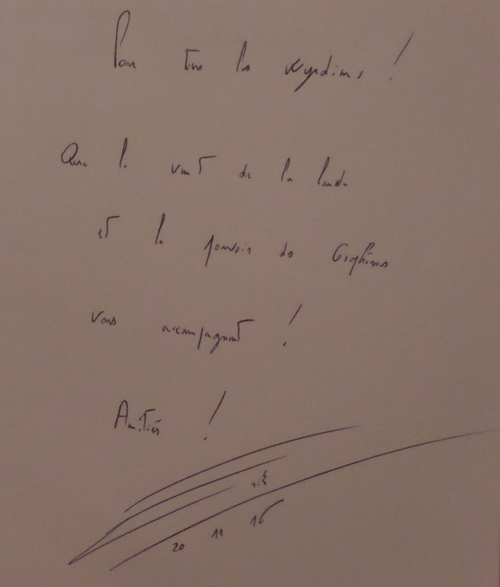 Pour tous les
Que le vent de la lande
et le pouvoir des Graphèmes
vous accompagnent !
Amitiés !
20 11 16